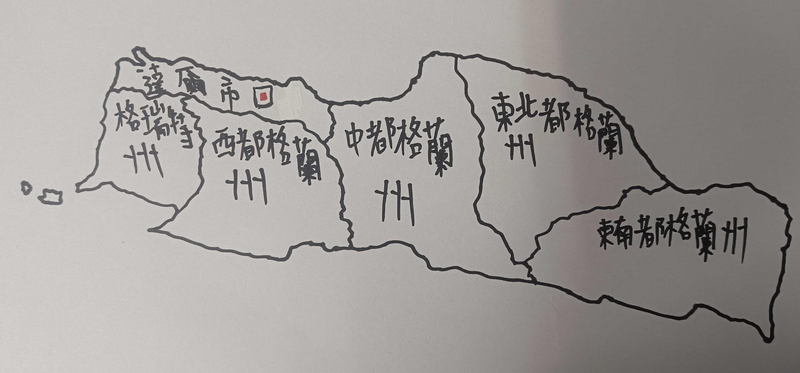 達爾市
格瑞特
州
西都格蘭
州
中都格蘭
州
東北都格蘭
州
東南都格蘭州